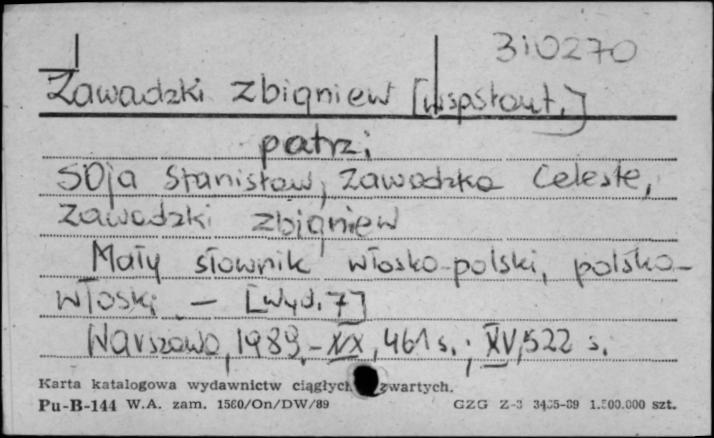 310270
Zawadzki Zbigniew [współaut.]
patrz:
Soja Stanisław, Zawadzka Celeste,
Zawadzki Zbigniew
Mały słownik włosko-polski, polsko-
włoski. - [Wyd. 7]
Warszawa, 1989. - XX, 461 s. ; XV, 522 s.
Karta katalogowa wydawnictw ciągłych zwartych.
Pu-B-144 W.A. zam. 1560/On/DW/89 GZG Z-3 3435-89 1.500.000 szt.